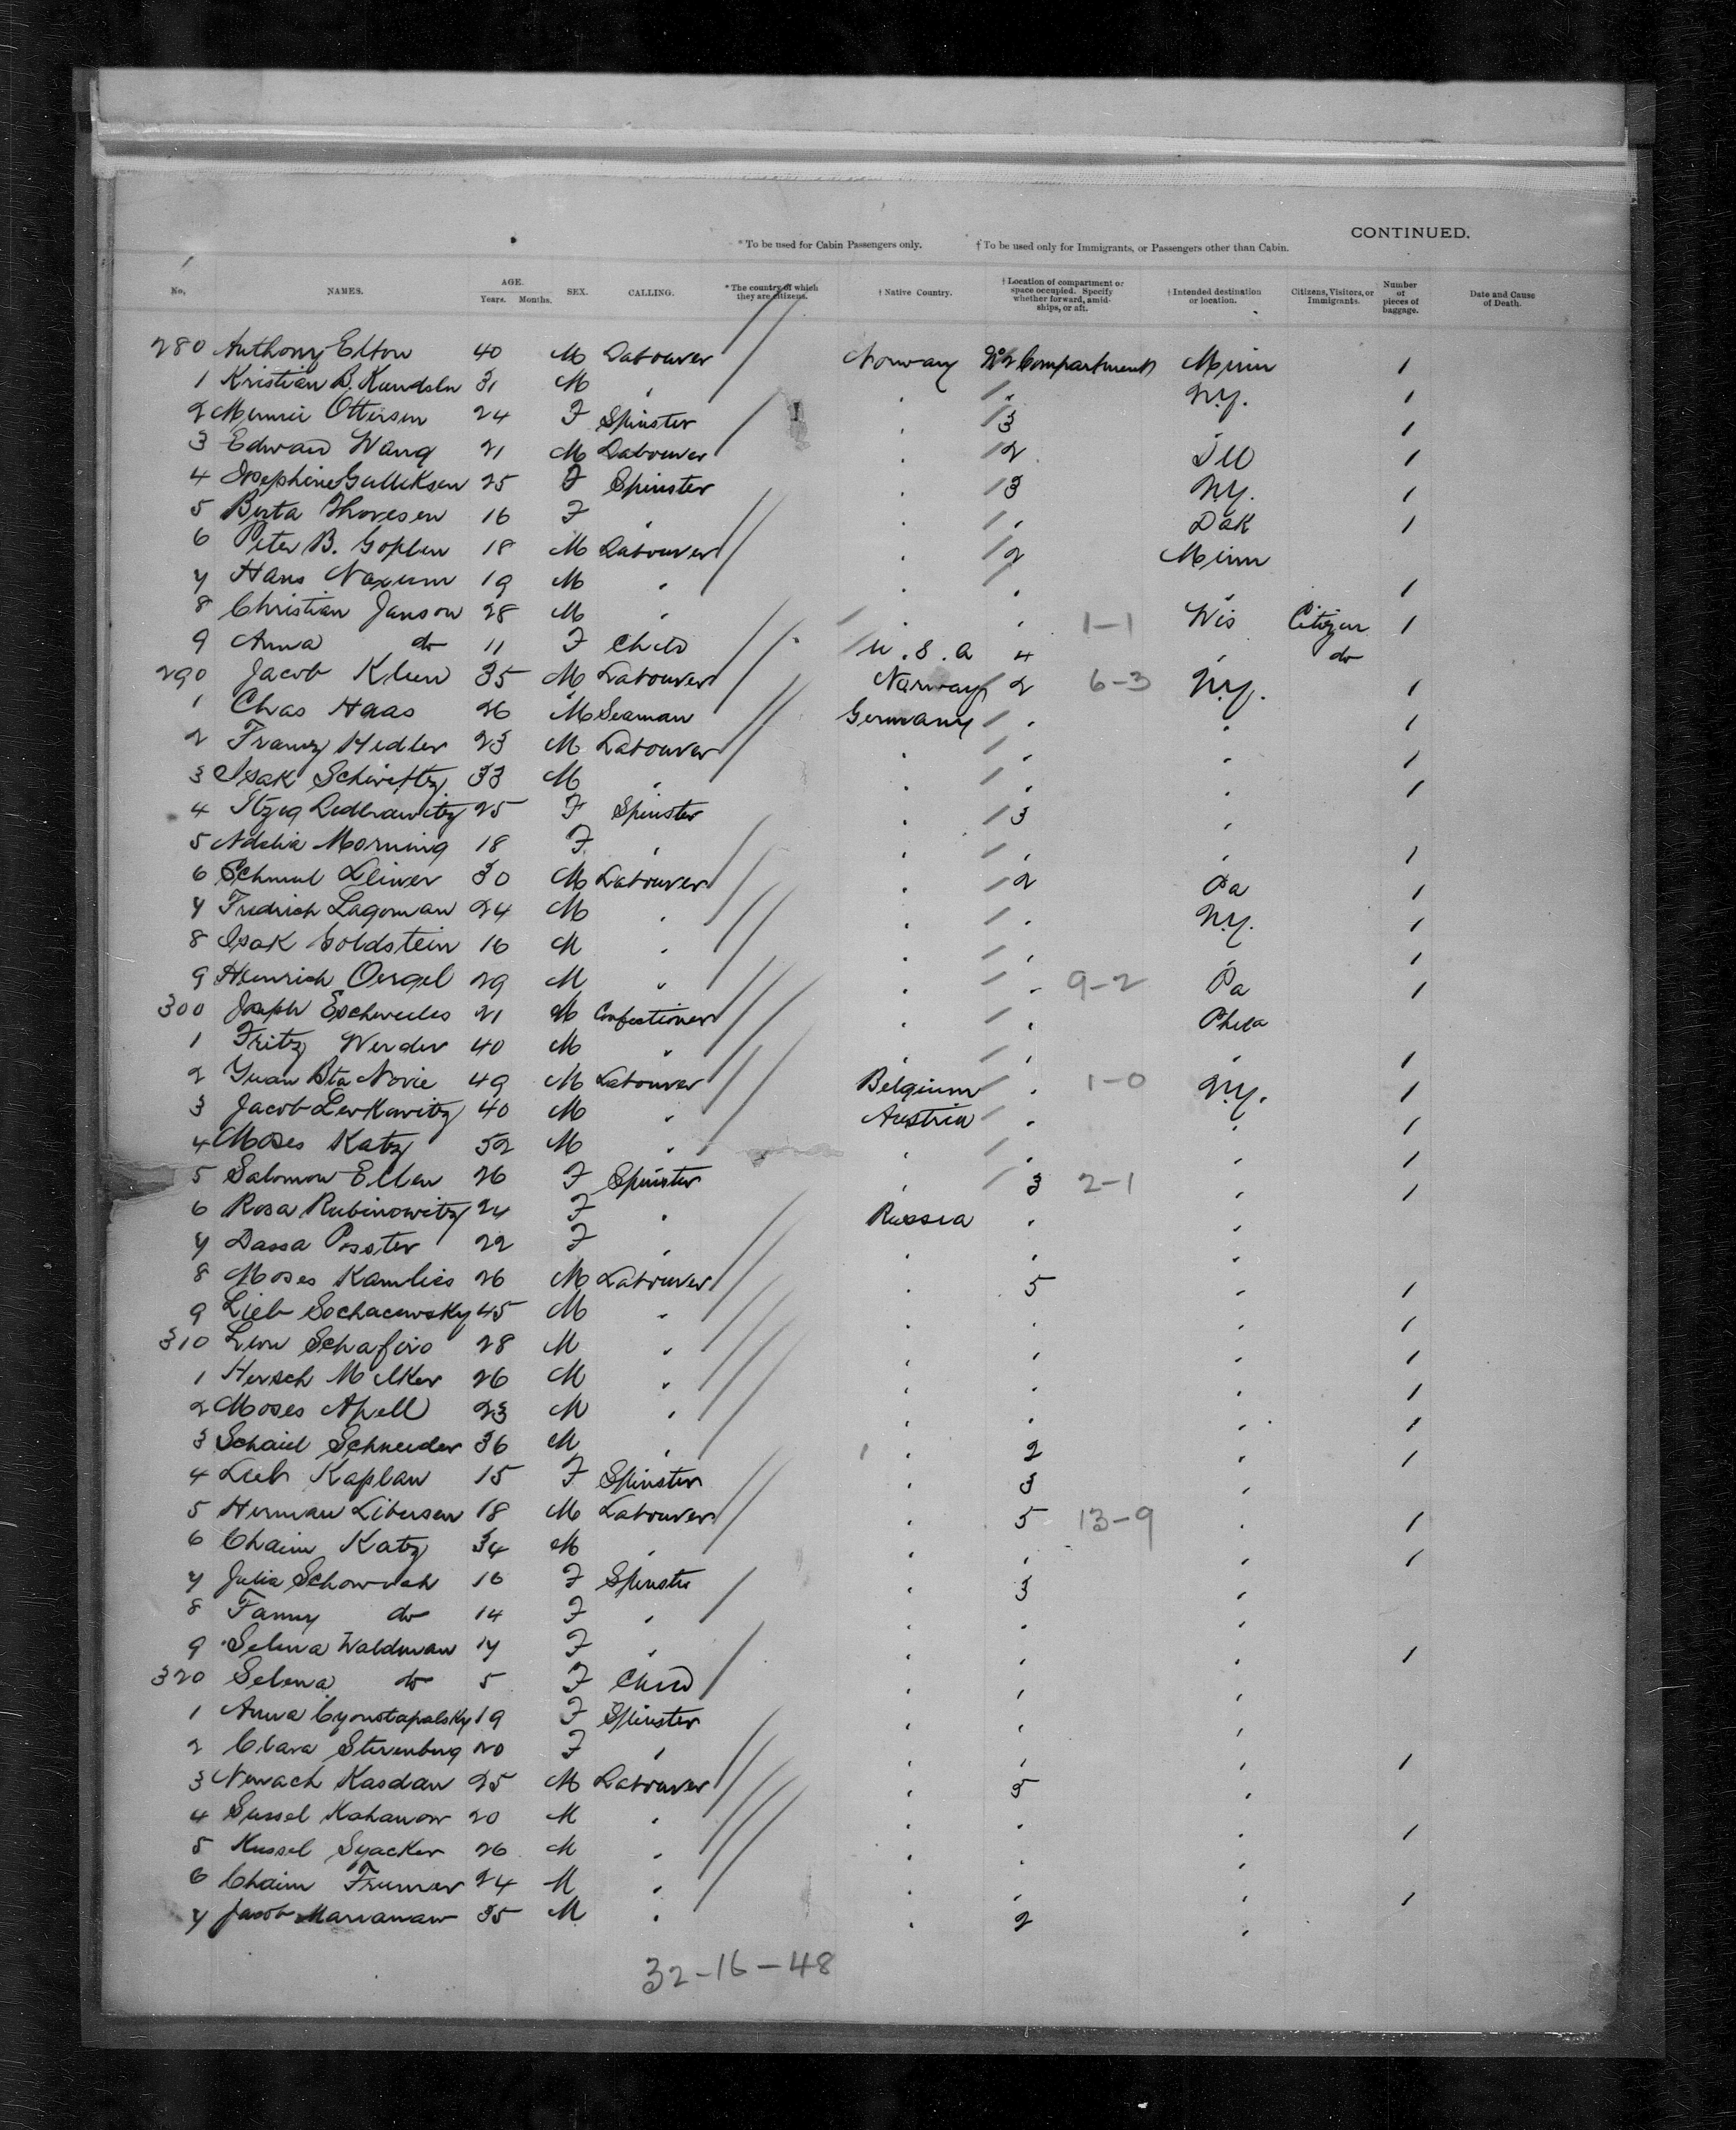 CONTINUED.
* To be used for Cabin Passengers only. † To be used only for Immigrants, or Passengers other than Cabin.
No. NAMES. AGE. Years. Months. SEX. CALLING. * The country of which they are citizens. † Native Country. † Location of compartment or space occupied. Specify whether forward, amidships, or aft. † Intended destination or location. Citizens, Visitors, or Immigrants. Number of pieces of baggage. Date and Cause of Death.
280 Anthony Elton 40 M Labourer Norway No 2 Compartment Minn 1
1 Kristian B. Kundsln 31 M " " " N.Y. 1
2 Minnie Ottersen 24 F Spinster " 3 " 1
3 Edward Wang 21 M Labourer " 2 Ill 1
4 Josephine Gulliksen 25 F Spinster " 3 N.Y. 1
5 Berta Thoresen 16 F " " " Dak 1
6 Peter B. Goplen 18 M Labourer " 2 Minn
7 Hans Naxum 19 M " " " " 1
8 Christian Janson 28 M " " " 1-1 Wis Citizen 1
9 Anna do 11 F Child U.S.A 4 " do
290 Jacob Klein 35 M Labourer Norway 2 6-3 N.Y. 1
1 Chas Haas 26 M Seaman Germany " " 1
2 Franz Hedler 23 M Labourer " " " 1
3 Isak Schwiftz 33 M " " " " 1
4 Itzig Lederawitz 25 F Spinster " 3 "
5 Adelia Morning 18 F " " " " 1
6 Schmul Leiner 30 M Labourer " 2 Pa 1
7 Fredrich Lagoman 24 M " " " N.Y. 1
8 Isak Goldstein 16 M " " " " 1
9 Heinrich Oergel 29 M " " " 9-2 Pa 1
300 Joseph 21 M Confectioner " " Phila
1 Fritz Werder 40 M " " " " 1
2 Yuan Bta Novie 49 M Labourer Belgium " 1-0 N.Y. 1
3 Jacob Lerkowitz 40 M " Austria " " 1
4 Moses Katz 52 M " " " " 1
5 Salomon Ellen 26 F Spinster " 3 2-1 " 1
6 Rosa Rubinowitz 24 F " Russia " "
7 Dassa Posster 22 F " " " "
8 Moses Kamlies 26 M Labourer " 5 " 1
9 Lieb Sochacewsky 45 M " " " " 1
310 Leon Schafiro 28 M " " " " 1
1 Hersch Milker 26 M " " " " 1
2 Moses Apell 23 M " " " " 1
3 Schaiel Schneider 36 M " " 2 " 1
4 Lieb Kaplan 15 F Spinster " 3 "
5 Herman Libersen 18 M Labourer " 5 13-9 " 1
6 Chaim Katz 34 M " " " " 1
7 Julia 16 F Spinster " 3 "
8 Fanny do 14 F " " " "
9 Selma Waldman 17 F " " " " 1
320 Selena do 5 F Child " " "
1 Anna 19 F Spinster " " "
2 Clara Sterenberg 20 F " " " " 1
3 Nenach Kasdan 25 M Labourer " 5 "
4 Sussel Kahanow 20 M " " " " 1
5 Kussel Syacker 26 M " " " "
6 Chaim Frumer 24 M " " " " 1
7 Jacob Marianaw 35 M " " 2 "
32-16-48